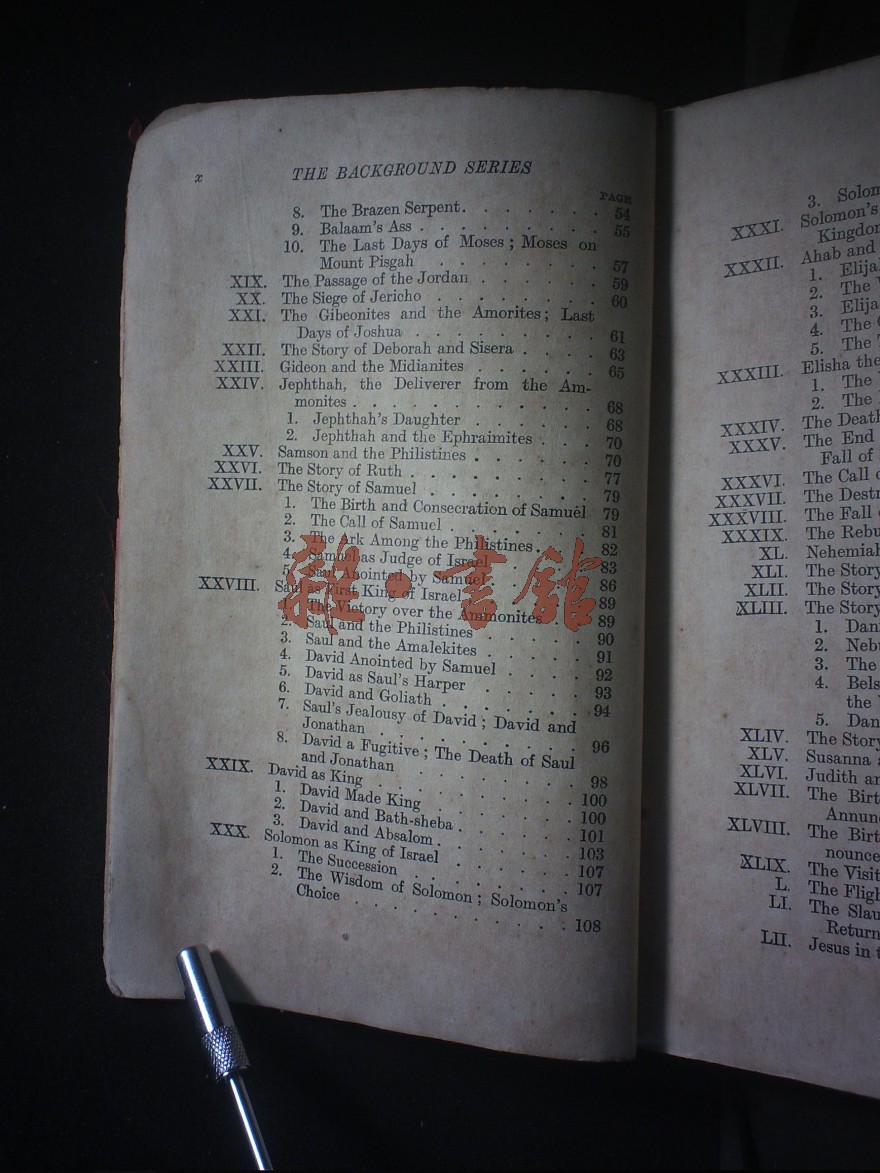 x THE BACKGROUND SERIES
PAGE
8. The Brazen Serpent. . . . . . . 54
9. Balaam's Ass . . . . . . . . . 55
10. The Last Days of Moses ; Moses on
Mount Pisgah . . . . . . . 57
XIX. The Passage of the Jordan . . . . . . 59
XX. The Siege of Jericho . . . . . . . . 60
XXI. The Gibeonites and the Amorites; Last
Days of Joshua . . . . . . . . . 61
XXII. The Story of Deborah and Sisera . . . . 63
XXIII. Gideon and the Midianites . . . . . . 65
XXIV. Jephthah, the Deliverer from the Am-
monites . . . . . . . . . . . 68
1. Jephthah's Daughter . . . . . . 68
2. Jephthah and the Ephraimites . . . 70
XXV. Samson and the Philistines . . . . . . 70
XXVI. The Story of Ruth . . . . . . . . . 77
XXVII. The Story of Samuel . . . . . . . . 79
1. The Birth and Consecration of Samuel 79
2. The Call of Samuel . . . . . . . 81
3. The Ark Among the Philistines. . . . 82
4. Samuel as Judge of Israel . . . . 83
5. Saul Anointed by Samuel . . . . 86
XXVIII. Saul as First King of Israel . . . . . 89
1. The Victory over the Ammonites . . 89
2. Saul and the Philistines . . . . . 90
3. Saul and the Amalekites . . . . . 91
4. David Anointed by Samuel . . . . 92
5. David as Saul's Harper . . . . . 93
6. David and Goliath . . . . . . . 94
7. Saul's Jealousy of David ; David and
Jonathan . . . . . . . . . 96
8. David a Fugitive ; The Death of Saul
and Jonathan . . . . . . . 98
XXIX. David as King . . . . . . . . . . 100
1. David Made King . . . . . . . 100
2. David and Bath-sheba . . . . . . 101
3. David and Absalom . . . . . . . 103
XXX. Solomon as King of Israel . . . . . . 107
1. The Succession . . . . . . . . 107
2. The Wisdom of Solomon ; Solomon's
Choice . . . . . . . . . . 108
雜·書館
3. Solom
XXXI. Solomon's
Kingdom
XXXII. Ahab and
1. Elijah
2. The
3. Elija
4. The
5. The
XXXIII. Elisha the
1. The
2. The
XXXIV. The Death
XXXV. The End
Fall of
XXXVI. The Call
XXXVII. The Destr
XXXVIII. The Fall
XXXIX. The Rebu
XL. Nehemiah
XLI. The Story
XLII. The Story
XLIII. The Story
1. Dan
2. Neb
3. The
4. Bels
the
5. Dan
XLIV. The Story
XLV. Susanna
XLVI. Judith an
XLVII. The Birt
Annun
XLVIII. The Birt
nounce
XLIX. The Visit
L. The Fligh
LI. The Slau
Return
LII. Jesus in